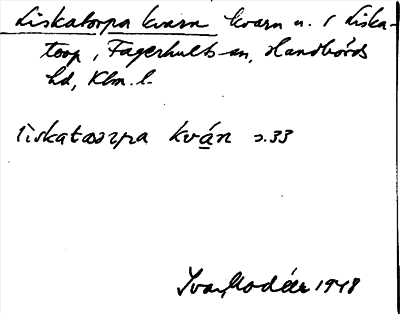 Liskatorpa kvarn kvarn u. i Liska-
torp, Fagerhults sn, Handbörds
hd, Klm. l.
liskatɷrpa kván s. 33
Ivar Modéer 1948